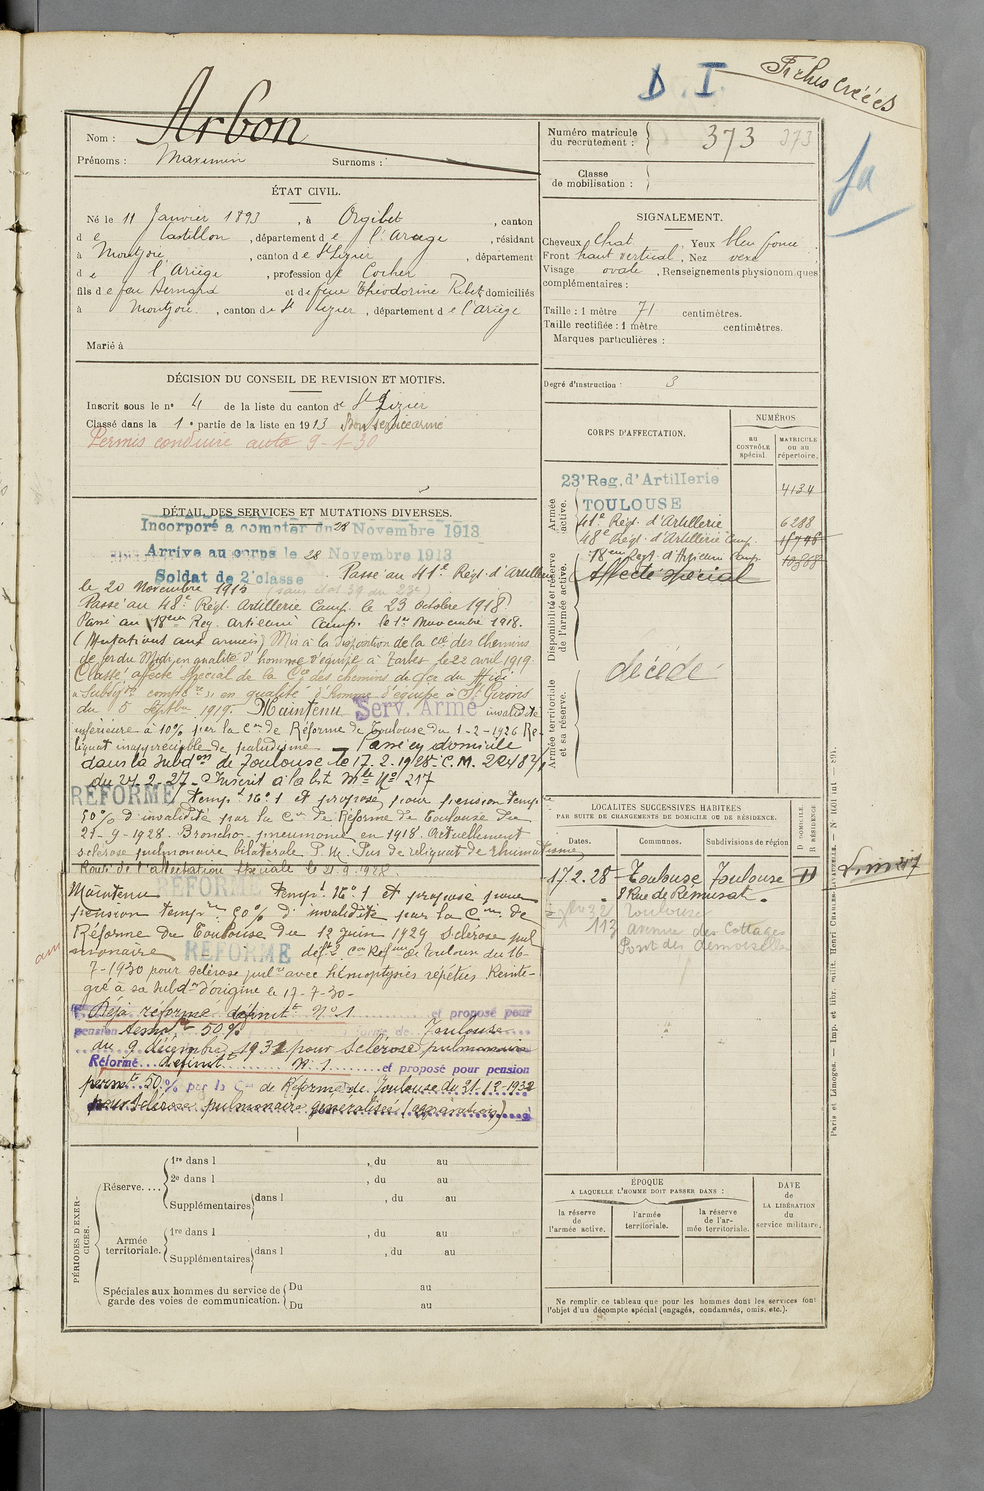 D. I.
Fiches créées
Nom : Arbon
Prénoms : Maximin Surnoms :
Numéro matricule du recrutement : 373 373
Classe de mobilisation :
ÉTAT CIVIL.
Né le 11 Janvier 1893, à Orgibet, canton
de Castillon, département de l'Ariège, résidant
à Montjoie, canton de St Lizier, département
de l'Ariège, profession de Cocher
fils de feu Bernard et de feue Théodorine Ribet domiciliés
à Montjoie, canton de St Lizier, département de l'Ariège
Marié à
SIGNALEMENT.
Cheveux chat. Yeux bleu foncé
Front haut vertical, Nez vexe
Visage ovale, Renseignements physionomiques
complémentaires :
Taille : 1 mètre 71 centimètres.
Taille rectifiée : 1 mètre centimètres.
Marques particulières :
Degré d'instruction : 3
DÉCISION DU CONSEIL DE REVISION ET MOTIFS.
Inscrit sous le n° 4 de la liste du canton de St Lizier
Classé dans la 1e partie de la liste en 1913 Bon service armé
Permis conduire auto 9-1-30
CORPS D'AFFECTATION.
NUMÉROS
AU CONTRÔLE spécial.
MATRICULE ou au répertoire.
Armée active.
23e Reg. d'Artillerie 4134
TOULOUSE
41e Régt. d'Artillerie 6288
48e Régt. d'Artillerie Camp.
18eme Regt. d'Artillerie Camp.
Disponibilité et réserve de l'armée active.
Affecté spécial
décédé
Armée territoriale et sa réserve.
DÉTAIL DES SERVICES ET MUTATIONS DIVERSES.
Incorporé à compter du 28 Novembre 1913
Arrivé au corps le 28 Novembre 1913
Soldat de 2e classe Passé au 41e Régt. d'Artillerie
le 20 Novembre 1915
Passé au 48e Régt Artillerie Camp. le 23 Octobre 1918.
Passé au 18eme Reg. Artillerie Camp. le 1er Novembre 1918.
(Mutations aux armées) Mis à la disposition de la Cie des Chemins
de fer du Midi en qualité d'homme d'équipe à Tarbes le 22 avril 1919.
Classé affecté spécial de la Cie des chemins de fer du Midi
"Subdon complre" en qualité d'homme d'équipe à St Girons
du 5 Septbre 1919. Maintenu Serv. Armé invalidité
inférieure à 10% par la Con de Réforme de Toulouse du 1-2-1926 Re-
liquat inappréciable de paludisme — Passé en domicile
dans la Subdon de Toulouse le 17.2.1928 C.M.
du 24.2.27 - Inscrit à la liste Mle No 217
RÉFORMÉ tempt No 1 et proposé pour pension temp
50% d'invalidité par la Con de Réforme de Toulouse du
21-9-1928. Broncho-pneumonie en 1918. Actuellement
sclérose pulmonaire bilatérale P.M. Pas de reliquat de rhumatisme
Route de l'attestation spéciale le 21.9.1928.
Maintenu RÉFORMÉ tempt No 1 et proposé pour
pension tempre 50% d'invalidité par la Con de
Réforme de Toulouse du 12 Juin 1929 Sclérose pul
monaire RÉFORMÉ déft Con Réfme de Toulouse du 16-
7-1930 pour sclérose pulre avec hémoptysies répétées Réinté-
gré à sa subdon d'origine le 17-7-30-
Déjà réformé définitt No 1 et proposé pour
pension temp 50% Toulouse
du 9 décembre 1931 pour sclérose pulmonaire
Réformé définitt N° 1 et proposé pour pension
permte 50% par la Con de Réforme de Toulouse du 21-12-1932
pour sclérose pulmonaire généralisée (aggravation)
LOCALITÉS SUCCESSIVES HABITÉES
PAR SUITE DE CHANGEMENTS DE DOMICILE OU DE RÉSIDENCE.
Dates. Communes. Subdivisions de région
D DOMICILE R RÉSIDENCE
17.2.28 Toulouse Toulouse D
8 Rue de Rémusat.
Toulouse
113 avenue des Cottages
Pont des demoiselles
PÉRIODES D'EXERCICES.
Réserve....
1re dans l , du au
2e dans l , du au
Supplémentaires dans l , du au
Armée territoriale.
1re dans l , du au
Supplémentaires dans l , du au
Spéciales aux hommes du service de garde des voies de communication. Du au
Du au
ÉPOQUE
A LAQUELLE L'HOMME DOIT PASSER DANS :
la réserve de l'armée active.
l'armée territoriale.
la réserve de l'armée territoriale.
DATE de LA LIBÉRATION du service militaire.
Ne remplir ce tableau que pour les hommes dont les services font
l'objet d'un décompte spécial (engagés, condamnés, omis, etc.).
Paris et Limoges. — Imp. et libr. milit. Henri CHARLES-LAVAUZELLE.